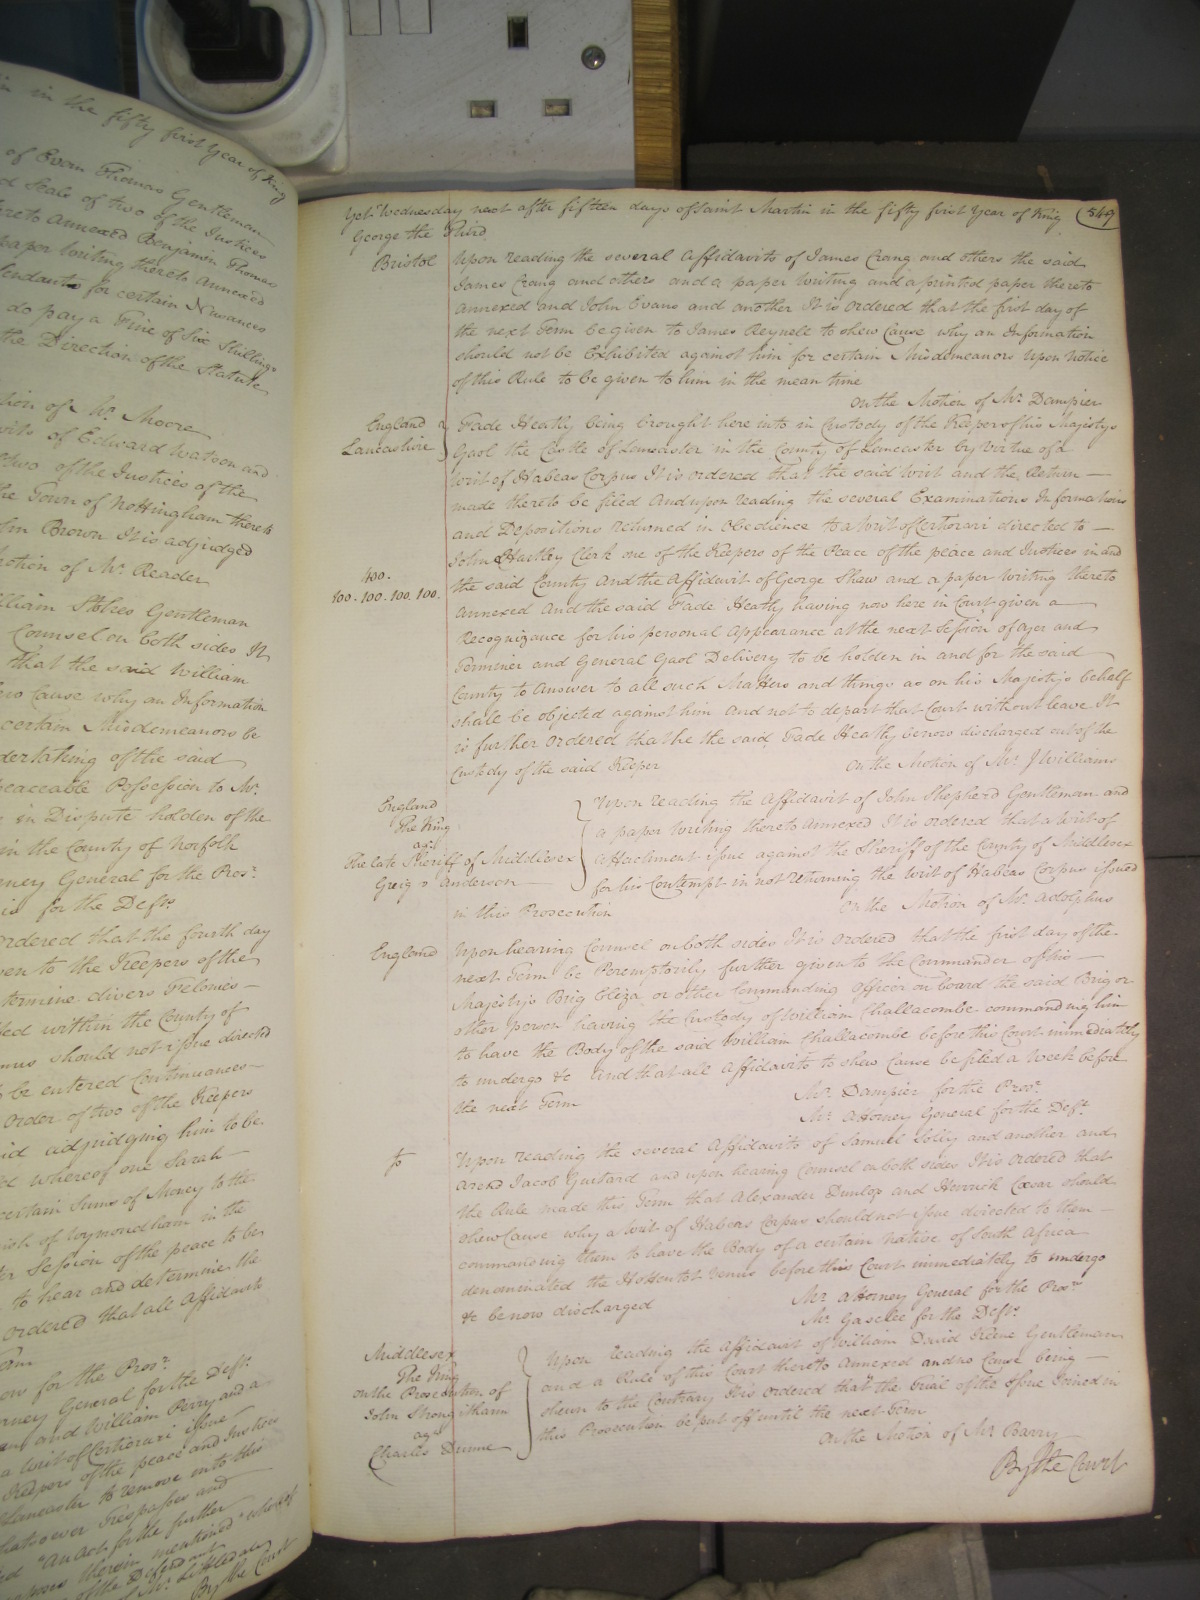 in the fifty first Year of King
of Evan Thomas Gentleman
Seals of two of the Justices
thereto annexed Benjamin Thomas
paper Writing thereto Annexed
for certain Nuisances
do pay a Fine of Six Shillings
the Direction of the Statute
of Mr. Moore
of Edward Watson and
two of the Justices of the
the Town of Nottingham thereto
Brown It is adjudged
Motion of Mr. Reader
William Stokes Gentleman
Counsel on both sides It
that the said William
Cause why an Information
certain Misdemeanors be
undertaking of the said
peaceable Possession to Mr.
in Dispute holden of the
in the County of Norfolk
Attorney General for the Prosr.
for the Defts.
Ordered that the fourth day
given to the Keepers of the
determine divers Felonies
within the County of
should not issue directed
to be entered Continuances
Order of two of the Keepers
adjudging him to be
whereof one Sarah
certain Sums of Money to the
of Wymondham in the
Session of the peace to be
to hear and determine the
Ordered that all Affidavits
for the Prosr.
Attorney General for the Deft.
and William Perry and a
a Writ of Certiorari issue
Keepers of the peace and Justices
Lancaster to remove into this
Trespasses and
"An Act for the further
therein mentioned"
of the Defendant
Mr. Littledale
By the Court
Yet Wednesday next after fifteen days of Saint Martin in the fifty first Year of King (549
George the Third
Bristol Upon reading the several Affidavits of James Crang and others the said
James Crang and others and a paper Writing and a printed paper thereto
annexed and John Evans and another It is Ordered that the first day of
the next Term be given to James Reynell to shew Cause why an Information
should not be Exhibited against him for certain Misdemeanors Upon Notice
of this Rule to be given to him in the mean time
On the Motion of Mr. Dampier
England Lancashire } Fade Heatly being brought here into in Custody of the Keeper of his Majestys
Gaol the Castle of Lancaster in the County of Lancaster by Virtue of a
Writ of Habeas Corpus It is ordered that the said Writ and the Return
made thereto be filed And upon reading the several Examinations Informations
and Depositions returned in Obedience to a Writ of Certiorari directed to
John Hartley Clerk one of the Keepers of the Peace of the peace and Justices in and
400.
100. 100. 100. 100. the said County And the Affidavit of George Shaw and a paper Writing thereto
Annexed And the said Fade Heatly having now here in Court given a
Recognizance for his personal Appearance at the next Session of Oyer and
Terminer and General Gaol Delivery to be holden in and for the said
County to Answer to all such Matters and things as on his Majestys behalf
shall be objected against him And not to depart that Court without leave It
is further Ordered that he the said Fade Heatly be now discharged out of the
Custody of the said Keeper On the Motion of Mr. J Williams
England
The King
agt.
The late Sheriff of Middlesex
Greig v Anderson
Upon reading the Affidavit of John Shepherd Gentleman and
a paper Writing thereto annexed It is ordered that a Writ of
Attachment issue against the Sheriff of the County of Middlesex
for his Contempt in not returning the Writ of Habeas Corpus issued
in this Prosecution On the Motion of Mr. Adolphus
England Upon hearing Counsel on both sides It is Ordered that the first day of the
next Term be Peremptorily further given to the Commander of his
Majestys Brig Eliza or other Commanding Officer on board the said Brig or
other person having the Custody of William Challacombe commanding him
to have the Body of the said William Challacombe before this Court immediately
to undergo &c And that all Affidavits to shew Cause be filed a Week before
the next Term Mr. Dampier for the Prosr.
Mr. Attorney General for the Deft.
Upon reading the several Affidavits of Samuel Solly and another and
Jacob Guitard and upon hearing Counsel on both sides It is Ordered that
the Rule made this Term that Alexander Dunlop and Henrick Cæsar should
shew Cause why a Writ of Habeas Corpus should not issue directed to them
commanding them to have the Body of a certain native of South Africa
denominated the Hottentot Venus before this Court immediately to undergo
&c be now discharged Mr Attorney General for the Prosr.
Mr. Gaselee for the Defts.
Middlesex
The King
on the Prosecution of
John Strongitharm
agt.
Charles Dunne
Upon reading the Affidavit of William David Keene Gentleman
and a Rule of this Court thereto Annexed and no Cause being
shewn to the Contrary It is Ordered that the Trial of the Issue Joined in
this Prosecution be put off until the next Term
On the Motion of Mr Barry
By the Court